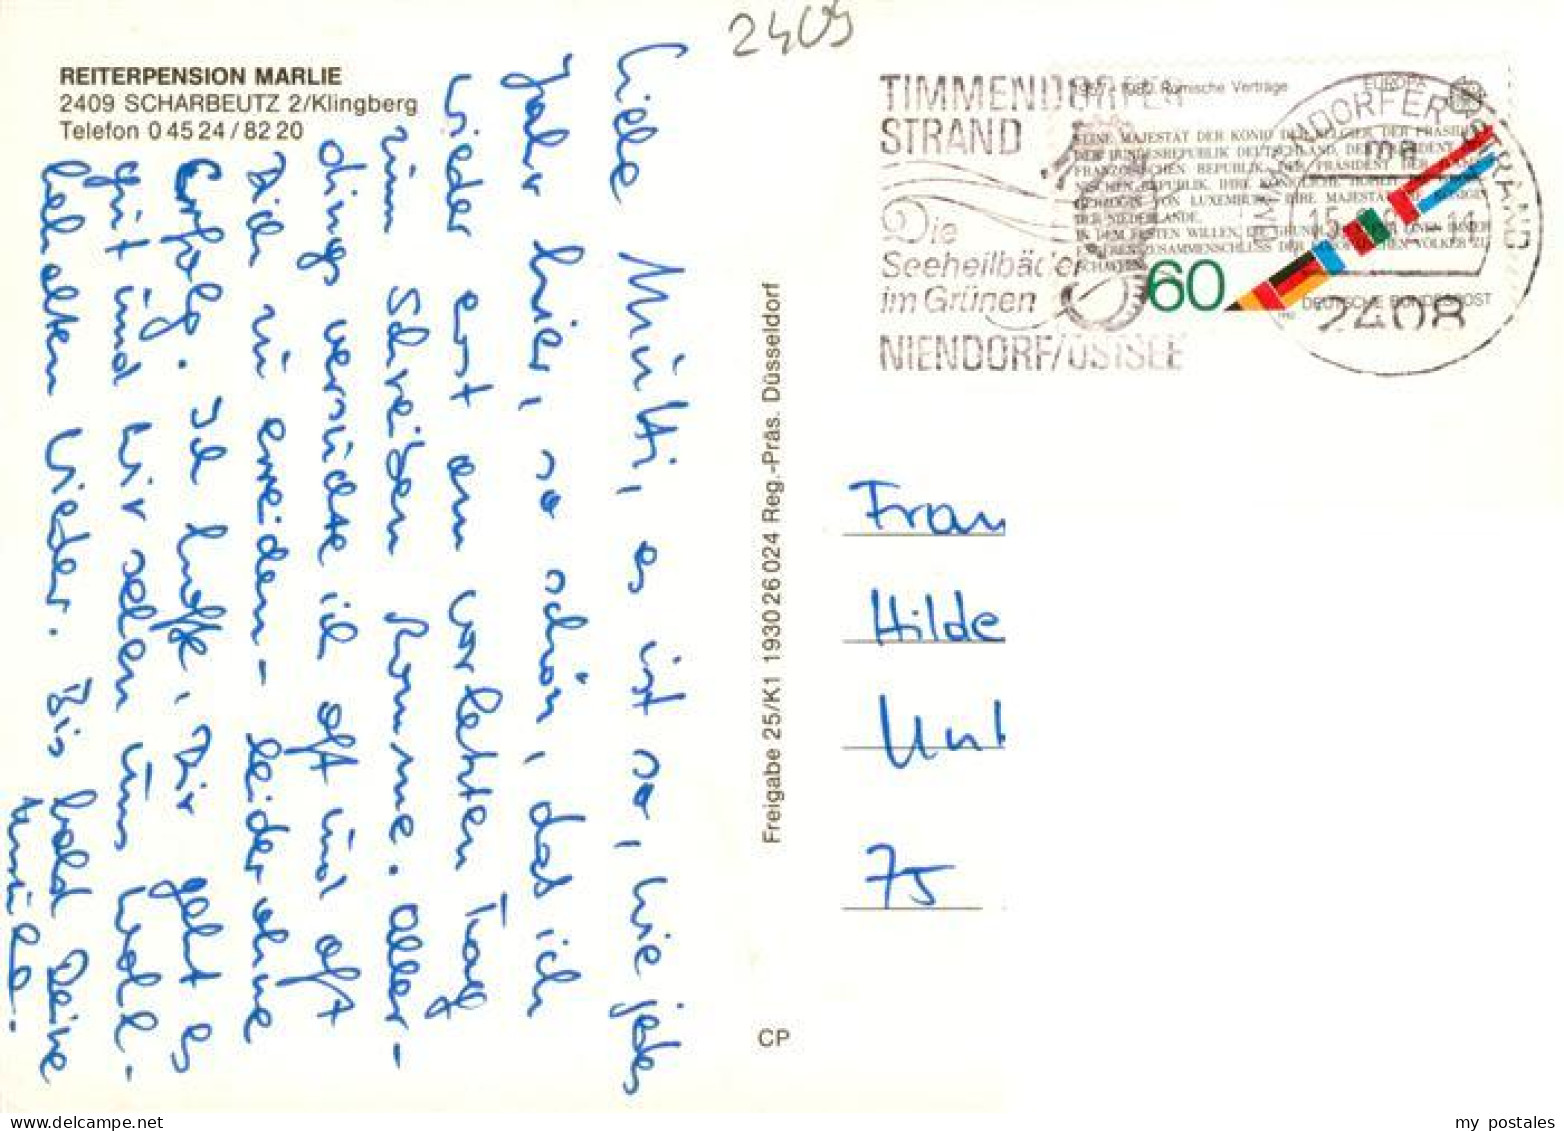 2409
REITERPENSION MARLIE
2409 SCHARBEUTZ 2/Klingberg
Telefon 0 45 24 / 82 20
Liebe Mutti, es ist so, wie jedes
Jahr hier, so schön, daß ich
wieder erst am vorletzten Tag
zum Schreiben komme. Aller-
dings versuchte ich oft und oft
Dich zu erreichen - leider ohne
Erfolg. Ich hoffe, Dir geht es
gut und wir sehen uns wohl-
behalten wieder. Bis bald Deine
Freigabe 25/K1 1930 26 024 Reg.-Präs. Düsseldorf
CP
TIMMENDORFER
STRAND
Die
Seeheilbäder
im Grünen
NIENDORF/OSTSEE
1957-1982 Römische Verträge
EUROPA
SEINE MAJESTÄT DER KÖNIG DER BELGIER, DER PRÄSIDENT
DER BUNDESREPUBLIK DEUTSCHLAND, DER PRÄSIDENT DER
FRANZÖSISCHEN REPUBLIK, DER PRÄSIDENT DER ITALIE-
NISCHEN REPUBLIK, IHRE KÖNIGLICHE HOHEIT DIE GROSS-
HERZOGIN VON LUXEMBURG, IHRE MAJESTÄT DIE KÖNIGIN
DER NIEDERLANDE,
IN DEM FESTEN WILLEN, DIE GRUNDLAGEN FÜR EINEN IMMER
ENGEREN ZUSAMMENSCHLUSS DER EUROPÄISCHEN VÖLKER ZU
SCHAFFEN
60
DEUTSCHE BUNDESPOST
TIMMENDORFER STRAND
ma
2408
Frau
Hilde
Unt
75